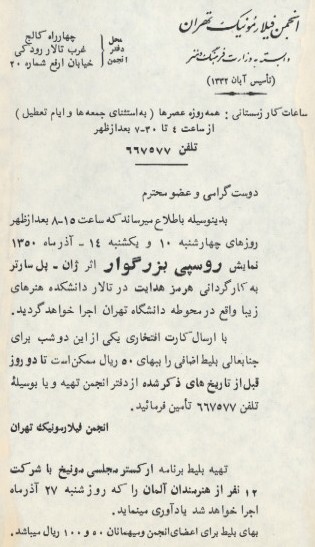 انجمن فیلارمونیک تهران
وابسته به وزارت فرهنگ و هنر
(تأسیس آبان ۱۳۳۲)
محل دفتر انجمن
چهارراه کالج
غرب تالار رودکی
خیابان ارفع شماره ۲۰
ساعات کار زمستانی : همه روزه عصرها ( به استثنای جمعه ها و ایام تعطیل )
از ساعت ٤ تا ۳۰-۷ بعدازظهر
تلفن ۶۶۷۵۷۷
دوست گرامی و عضو محترم
بدینوسیله باطلاع میرساند که ساعت ۱۵-۸ بعدازظهر
روزهای چهارشنبه ۱۰ و یکشنبه ۱٤ - آذر ماه ۱۳۵۰
نمایش روسپی بزرگوار اثر ژان - پل سارتر
به کارگردانی هرمز هدایت در تالار دانشکده هنرهای
زیبا واقع در محوطه دانشگاه تهران اجرا خواهد گردید.
با ارسال کارت افتخاری یکی از این دو شب برای
جنابعالی بلیط اضافی را ببهای ۵۰ ریال ممکن است تا دو روز
قبل از تاریخ های ذکر شده از دفتر انجمن تهیه و یا بوسیلهٔ
تلفن ۶۶۷۵۷۷ تأمین فرمائید.
انجمن فیلارمونیک تهران
تهیه بلیط برنامه ارکستر مجلسی مونیخ با شرکت
۱۲ نفر از هنرمندان آلمان را که روز شنبه ۲۷ آذرماه
اجرا خواهد شد یادآوری مینماید.
بهای بلیط برای اعضای انجمن ومیهمانان ۵۰ و ۱۰۰ ریال میباشد.